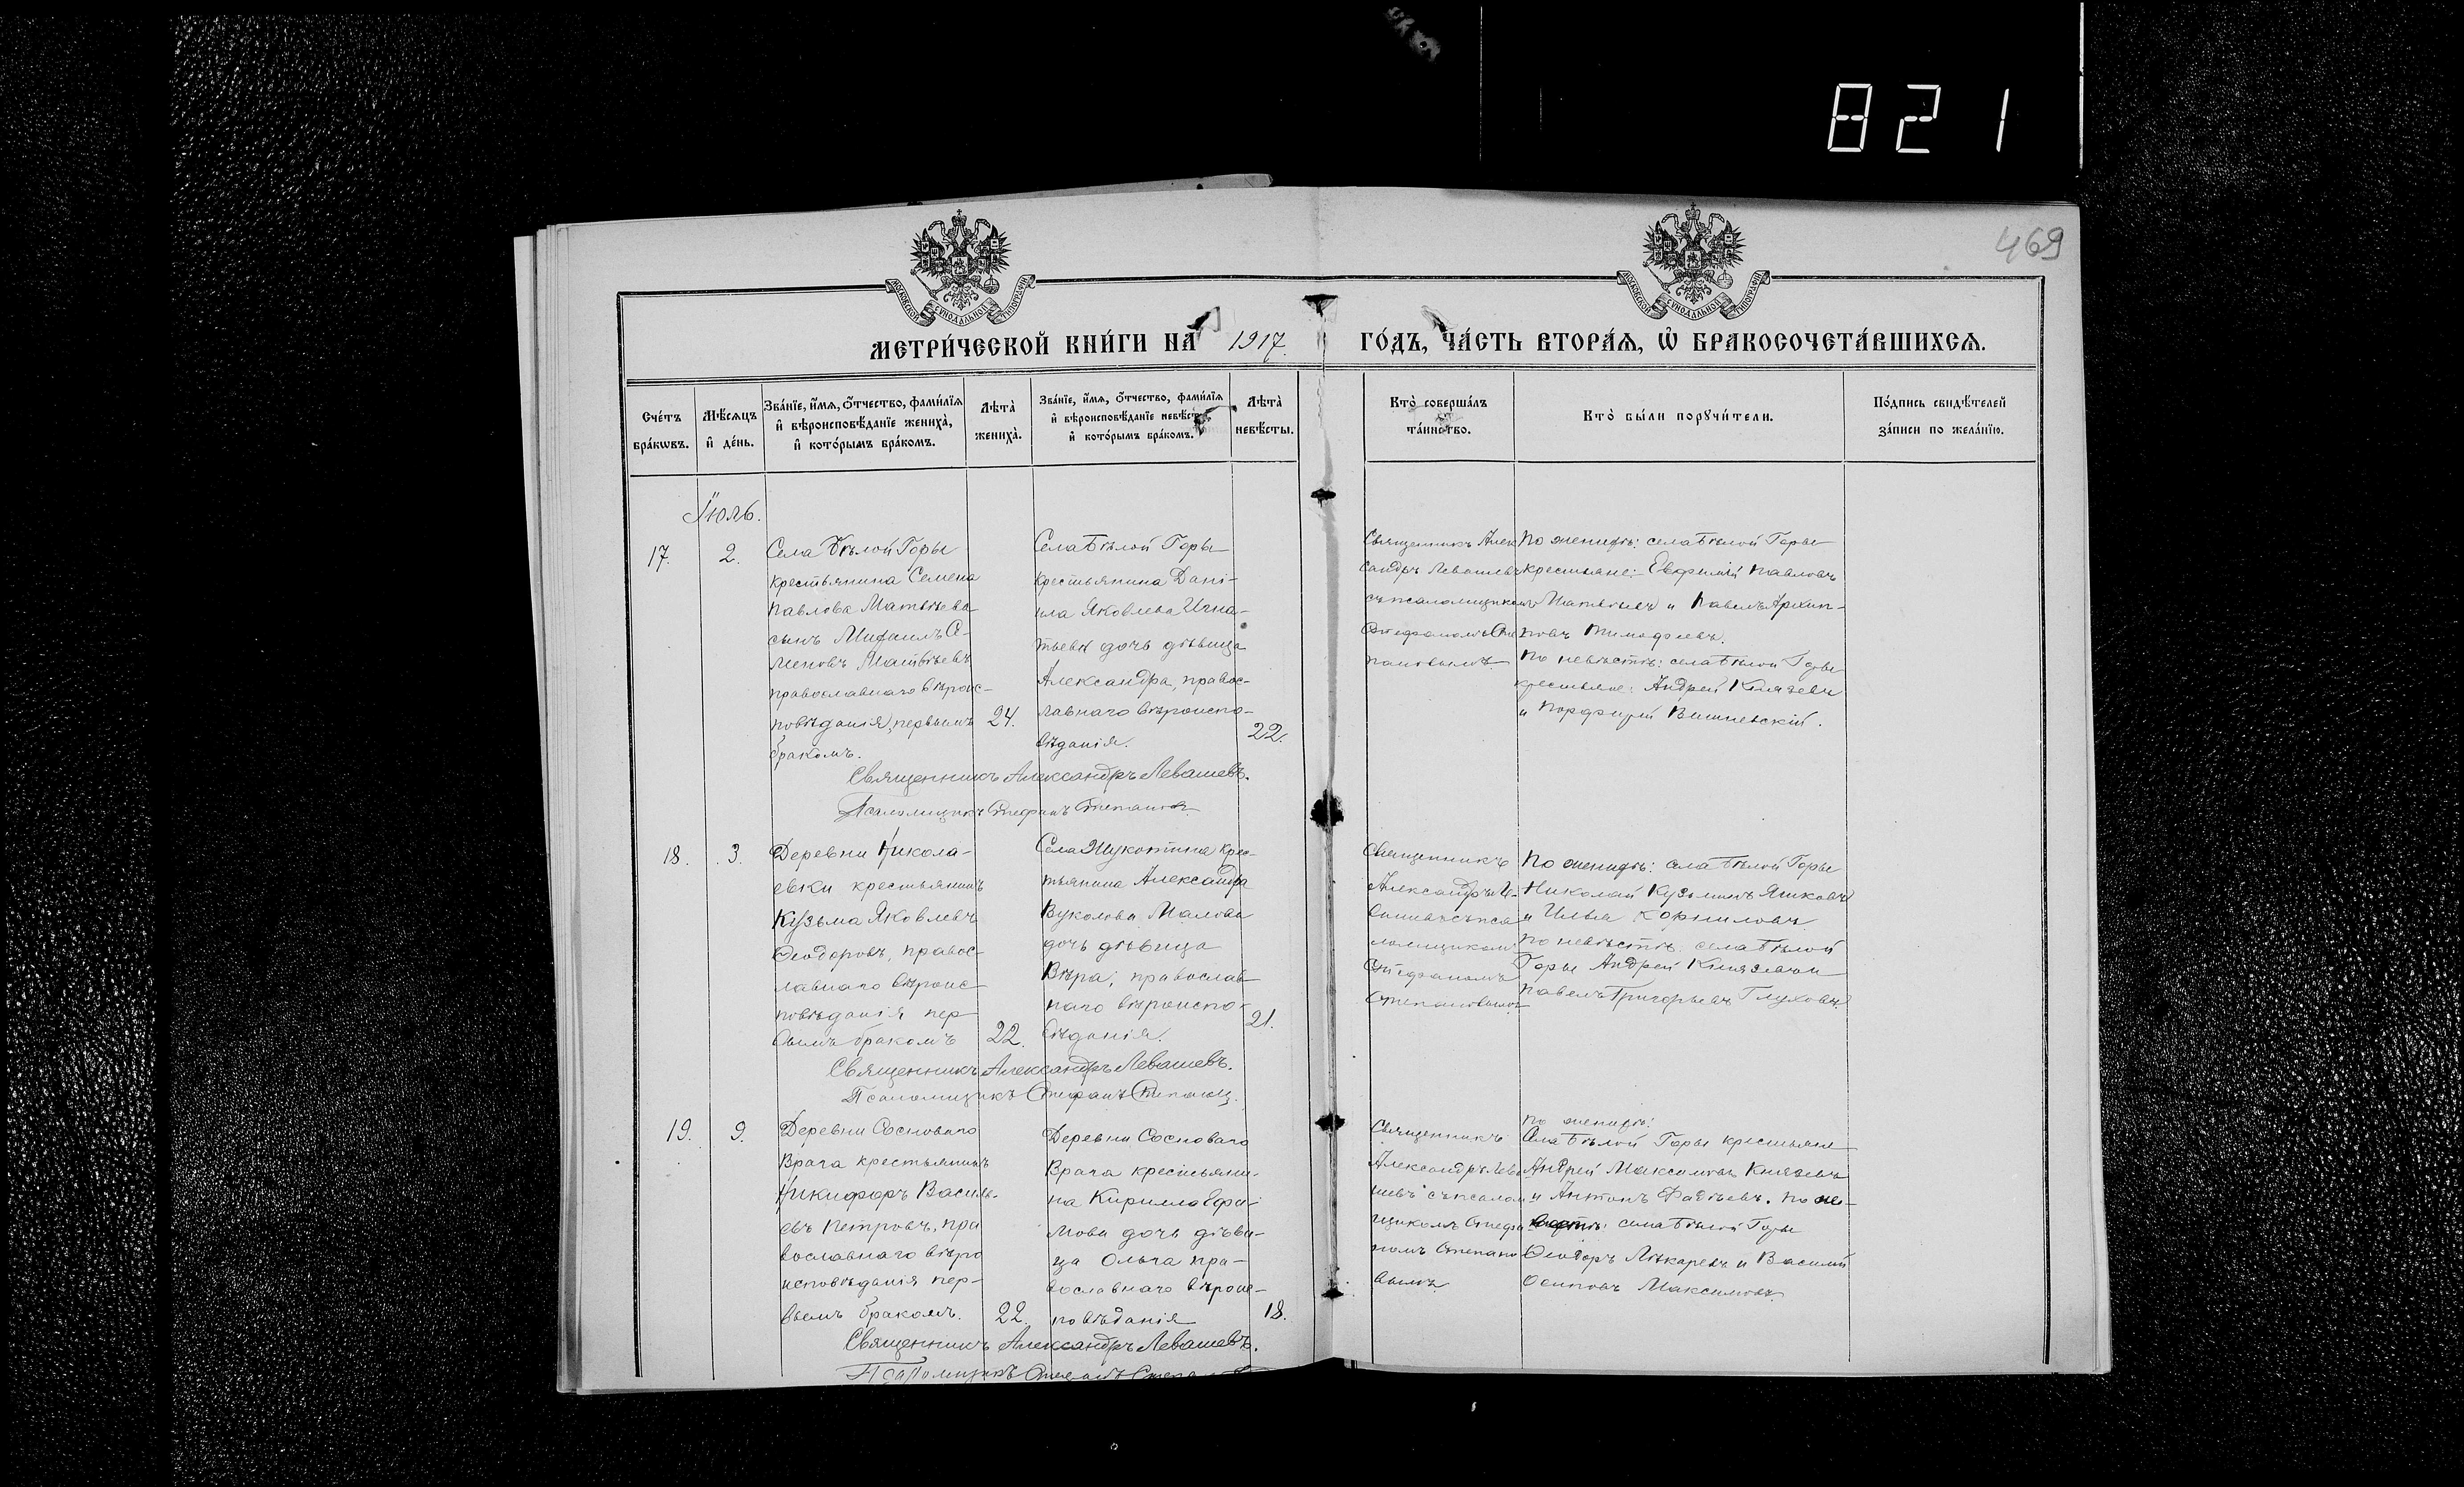 821
469
МОСКОВСКОЙ СѴНОДАЛЬНОЙ ТИПОГРАФІИ
МОСКОВСКОЙ СѴНОДАЛЬНОЙ ТИПОГРАФІИ
МЕТРИ́ЧЕСКОЙ КНИ́ГИ НА 1917 ГО́ДЪ, ЧА́СТЬ ВТОРА́Ѧ, Ѡ҆ БРАКОСОЧЕТА́ВШИХСѦ.
Сче́тъ
бра́кѡвъ.
Мѣ́сѧцъ
и҆ де́нь.
Зва́нїе, и҆́мѧ, ѻ҆́тчество, фами́лїѧ
и҆ вѣроисповѣ́данїе жениха̀,
и҆ кото́рымъ бра́комъ.
Лѣта̀
жениха̀.
Зва́нїе, и҆́мѧ, ѻ҆́тчество, фами́лїѧ
и҆ вѣроисповѣ́данїе невѣ́сты
и҆ кото́рымъ бра́комъ.
Лѣта̀
невѣ́сты.
Кто̀ соверша́лъ
та́инство.
Кто̀ бы́ли порꙋчи́тели.
По́дпись свидѣ́телей
за́писи по жела́нїю.
Іюль.
17.
2.
Села Бѣлой Горы
крестьянина Семена
Павлова Матвѣева
сынъ Михаилъ Се-
меновъ Матвѣевъ
православнаго вѣроис-
повѣданія, первымъ
бракомъ.
24.
Села Бѣлой Горы
крестьянина Дані-
ила Яковлева Игна-
тьева дочь дѣвица
Александра, правос-
лавнаго вѣроиспо-
вѣданія.
22.
Священникъ Алек
сандръ Левашевъ
съ псаломщикомъ
Стефаномъ Сте
пановымъ
По женихѣ: села Бѣлой Горы
крестьяне: Евфимій Павловъ
Матвѣевъ и Павелъ Архип-
повъ Тимофеевъ.
По невѣстѣ: села Бѣлой Горы
крестьяне: Андрей Князевъ
и Порфирій Вишневскій.
Священникъ Александръ Левашевъ.
Псаломщикъ Стефанъ Степановъ
18.
3.
Деревни Никола-
евки крестьянинъ
Кузьма Яковлевъ
Ѳеодоровъ, правос-
лавнаго вѣроис-
повѣданія пер-
вымъ бракомъ
22.
Села Жукотина крес-
тьянина Александра
Вуколова Малова
дочь дѣвица
Вѣра, православ
наго вѣроиспо-
вѣданія.
21.
Священникъ
Александръ Ле-
вашевъ съ пса
ломщикомъ
Стефаномъ
Степановымъ
По женихѣ: села Бѣлой Горы
Николай Кузьминъ Яшковъ
и Илья Корниловъ
По невѣстѣ: села Бѣлой
Горы Андрей Князевъ и
Павелъ Григорьевъ Глуховъ.
Священникъ Александръ Левашевъ.
Псаломщикъ Стефанъ Степановъ.
19.
9.
Деревни Сосноваго
Врага крестьянинъ
Никифоръ Василь-
евъ Петровъ, пра
вославнаго вѣро
исповѣданія пер-
вымъ бракомъ.
22.
Деревни Сосноваго
Врага крестьяни-
на Кирилла Ефи-
мова дочь дѣви-
ца Ольга пра-
вославнаго вѣроис-
повѣданія
18.
Священникъ
Александръ Лева
шевъ съ псалом
щикомъ Стефа
номъ Степано
вымъ.
По женихѣ:
Села Бѣлой Горы крестьяне
Андрей Максимовъ Князевъ
и Антонъ Фадѣевъ. По не-
вѣстѣ: села Бѣлой Горы
Ѳеодоръ Лѣкаревъ и Василій
Осиповъ Максимовъ.
Священникъ Александръ Левашевъ.
Псаломщикъ Стефанъ Степановъ